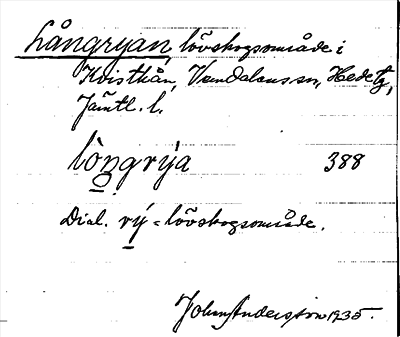 Långryan, lövskogsområde i
Kvisthån, Vemdalens sn, Hede tg,
Jämtl. l.
lòngrýa 388
Dial. rý = lövskogsområde.
John Andersson 1935.